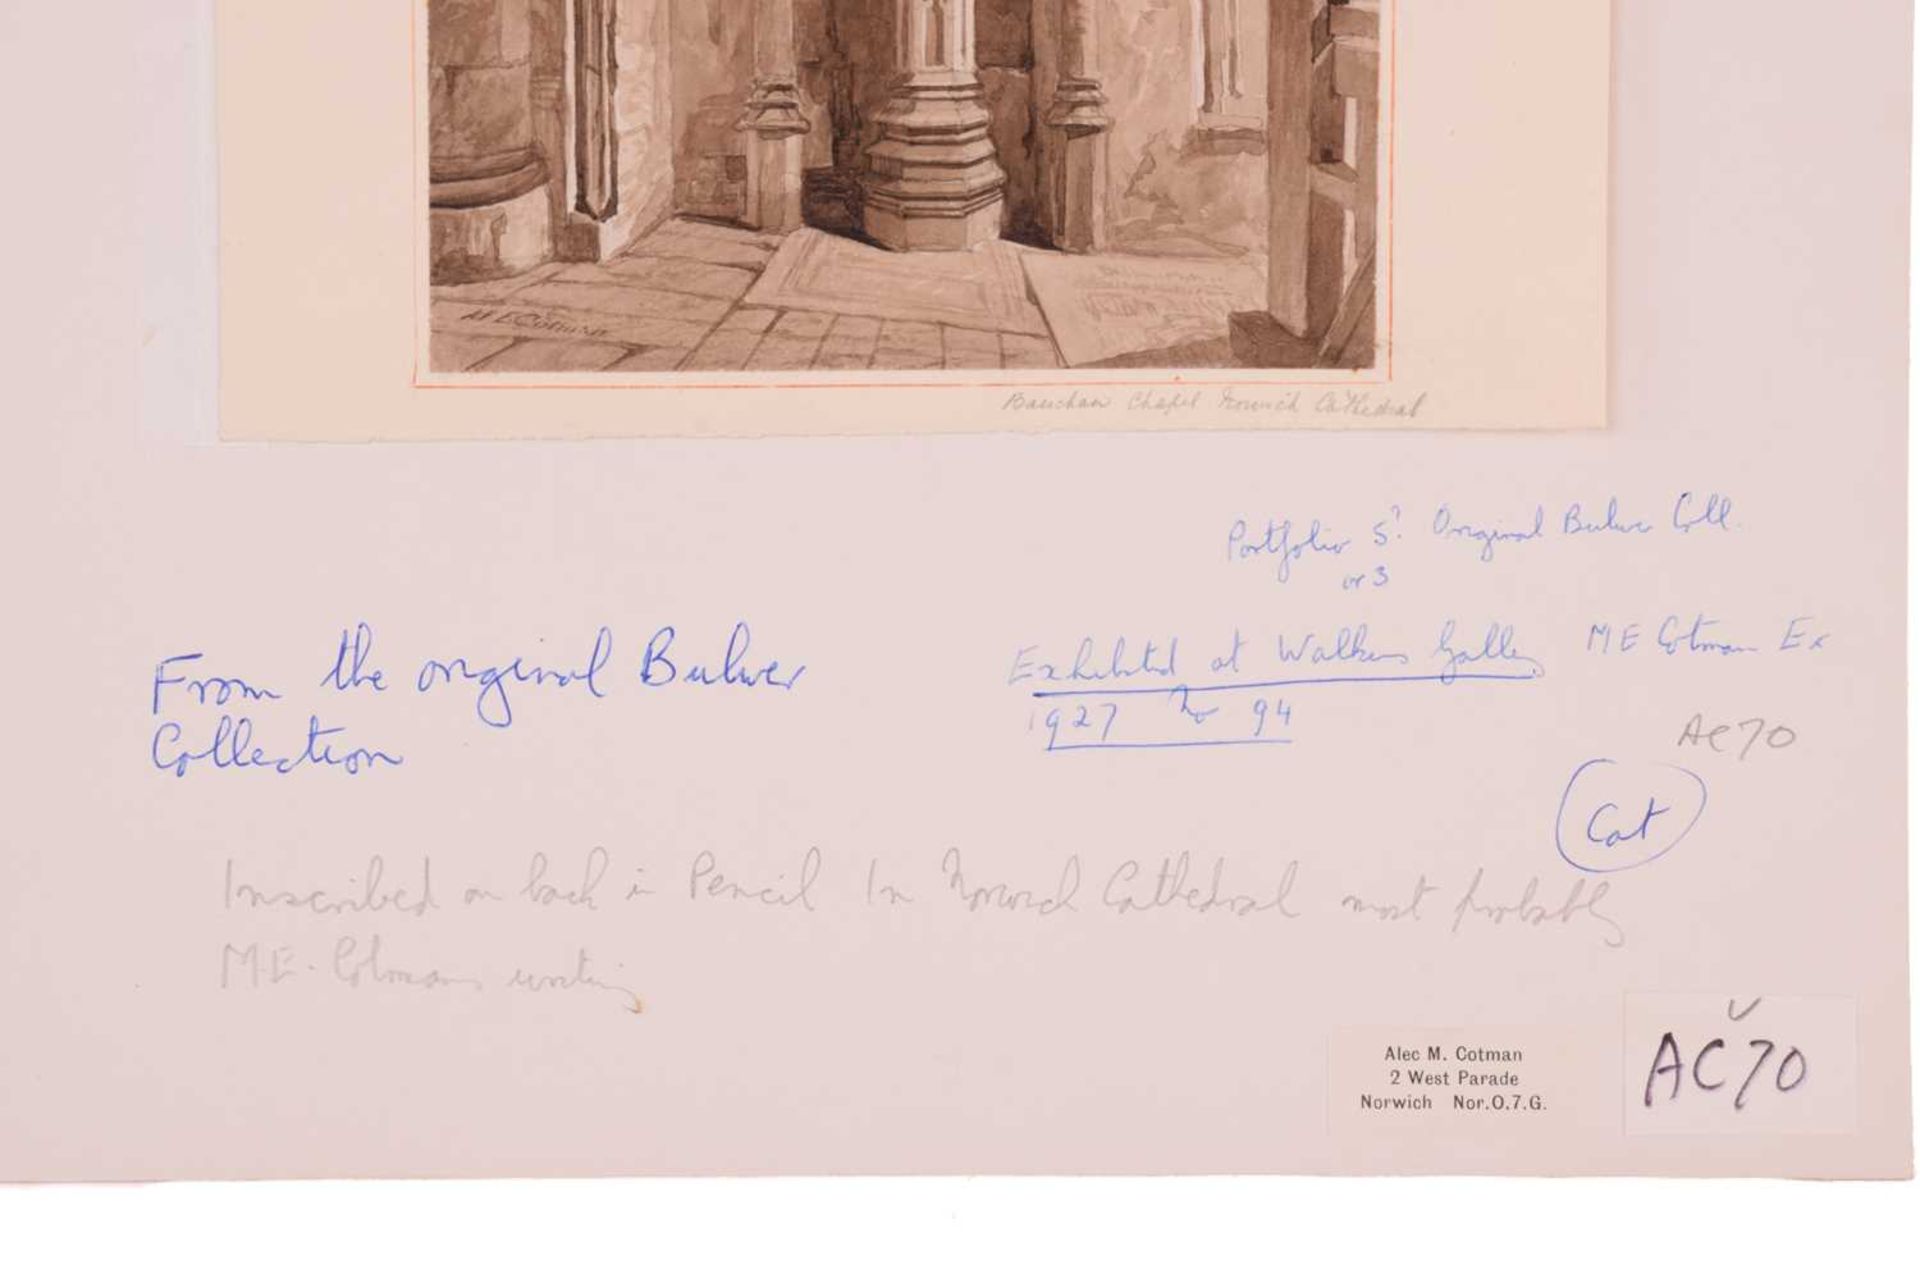 M E Cotman
Bauchan Chapel Norwich Cathedral
Portfolio 5? Original Bulwer Coll.
or 3
From the original Bulwer
Collection
Exhibited at Walkers Gallery M E Cotman Ex
1927 No 94
AC70
Cat
Inscribed on back in Pencil In Norwich Cathedral most probably
M.E. Cotmans writing
Alec M. Cotman
2 West Parade
Norwich Nor.O.7.G.
AC70